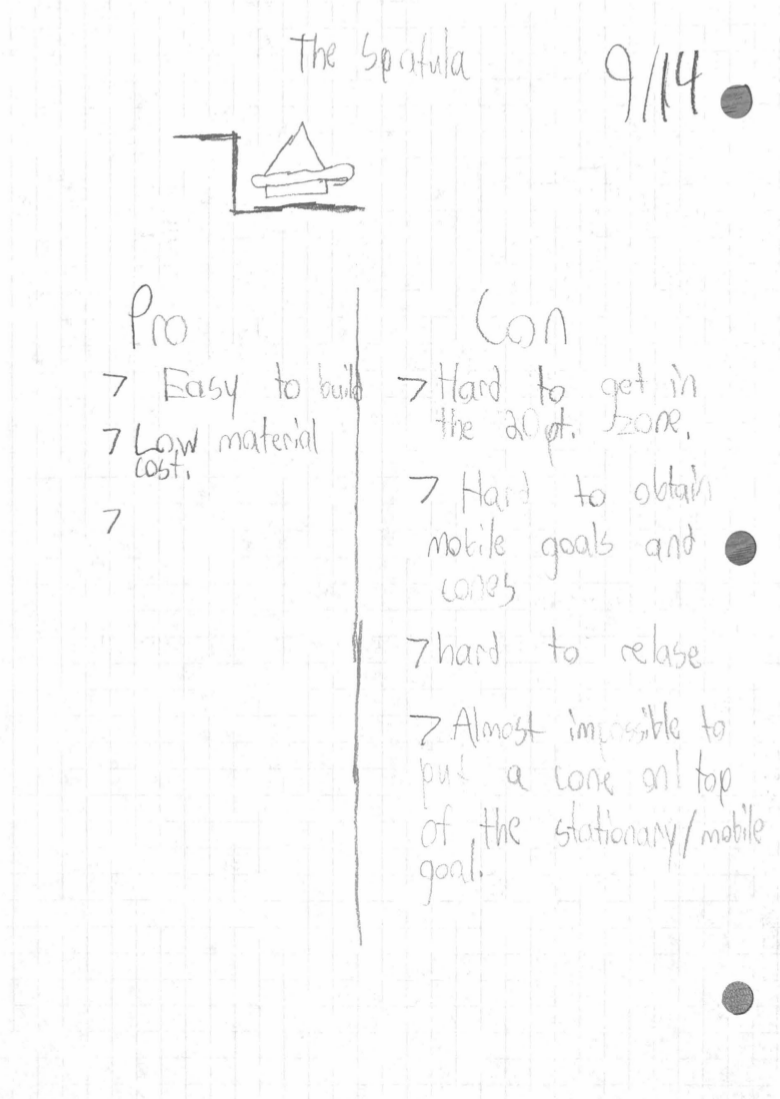 The Spatula
9/14
Pro
> Easy to build
> Low material
cost.
>
Con
> Hard to get in
the 20pt. zone.
> Hard to obtain
mobile goals and
cones
> hard to relase
> Almost impossible to
put a cone on top
of the stationary/mobile
goal.